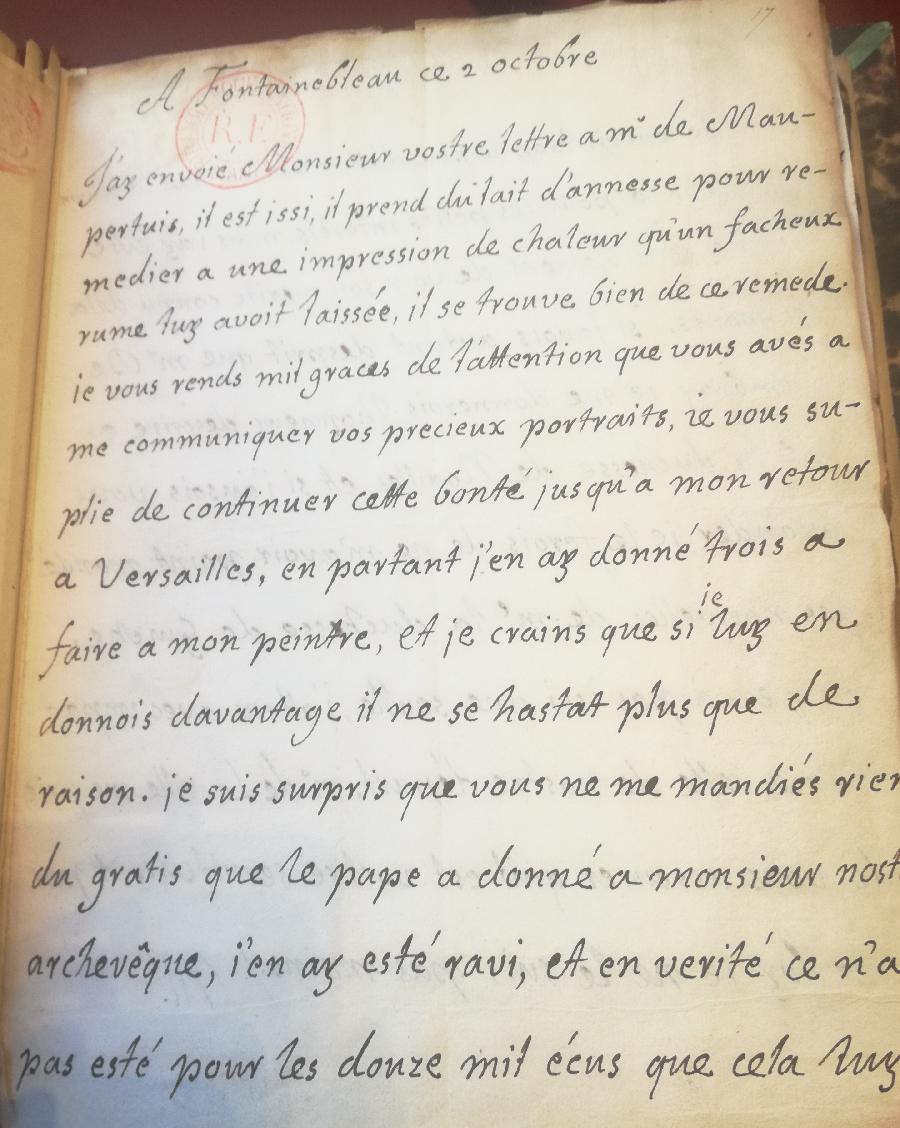 17
A Fontainebleau ce 2 octobre
R.F.
J'ay envoié Monsieur vostre lettre a mr de Mau-
pertuis, il est issi, il prend du lait d'annesse pour re-
medier a une impression de chaleur qu'un facheux
rume luy avoit laissée, il se trouve bien de ce remede.
je vous rends mil graces de l'attention que vous avés a
me communiquer vos precieux portraits, ie vous su-
plie de continuer cette bonté jusqu'a mon retour
a Versailles, en partant j'en ay donné trois a
faire a mon peintre, et je crains que si ie luy en
donnois davantage il ne se hastat plus que de
raison. je suis surpris que vous ne me mandiés rien
du gratis que le pape a donné a monsieur nost
archevêque, i'en ay esté ravi, et en verité ce n'a
pas esté pour les douze mil écus que cela luy